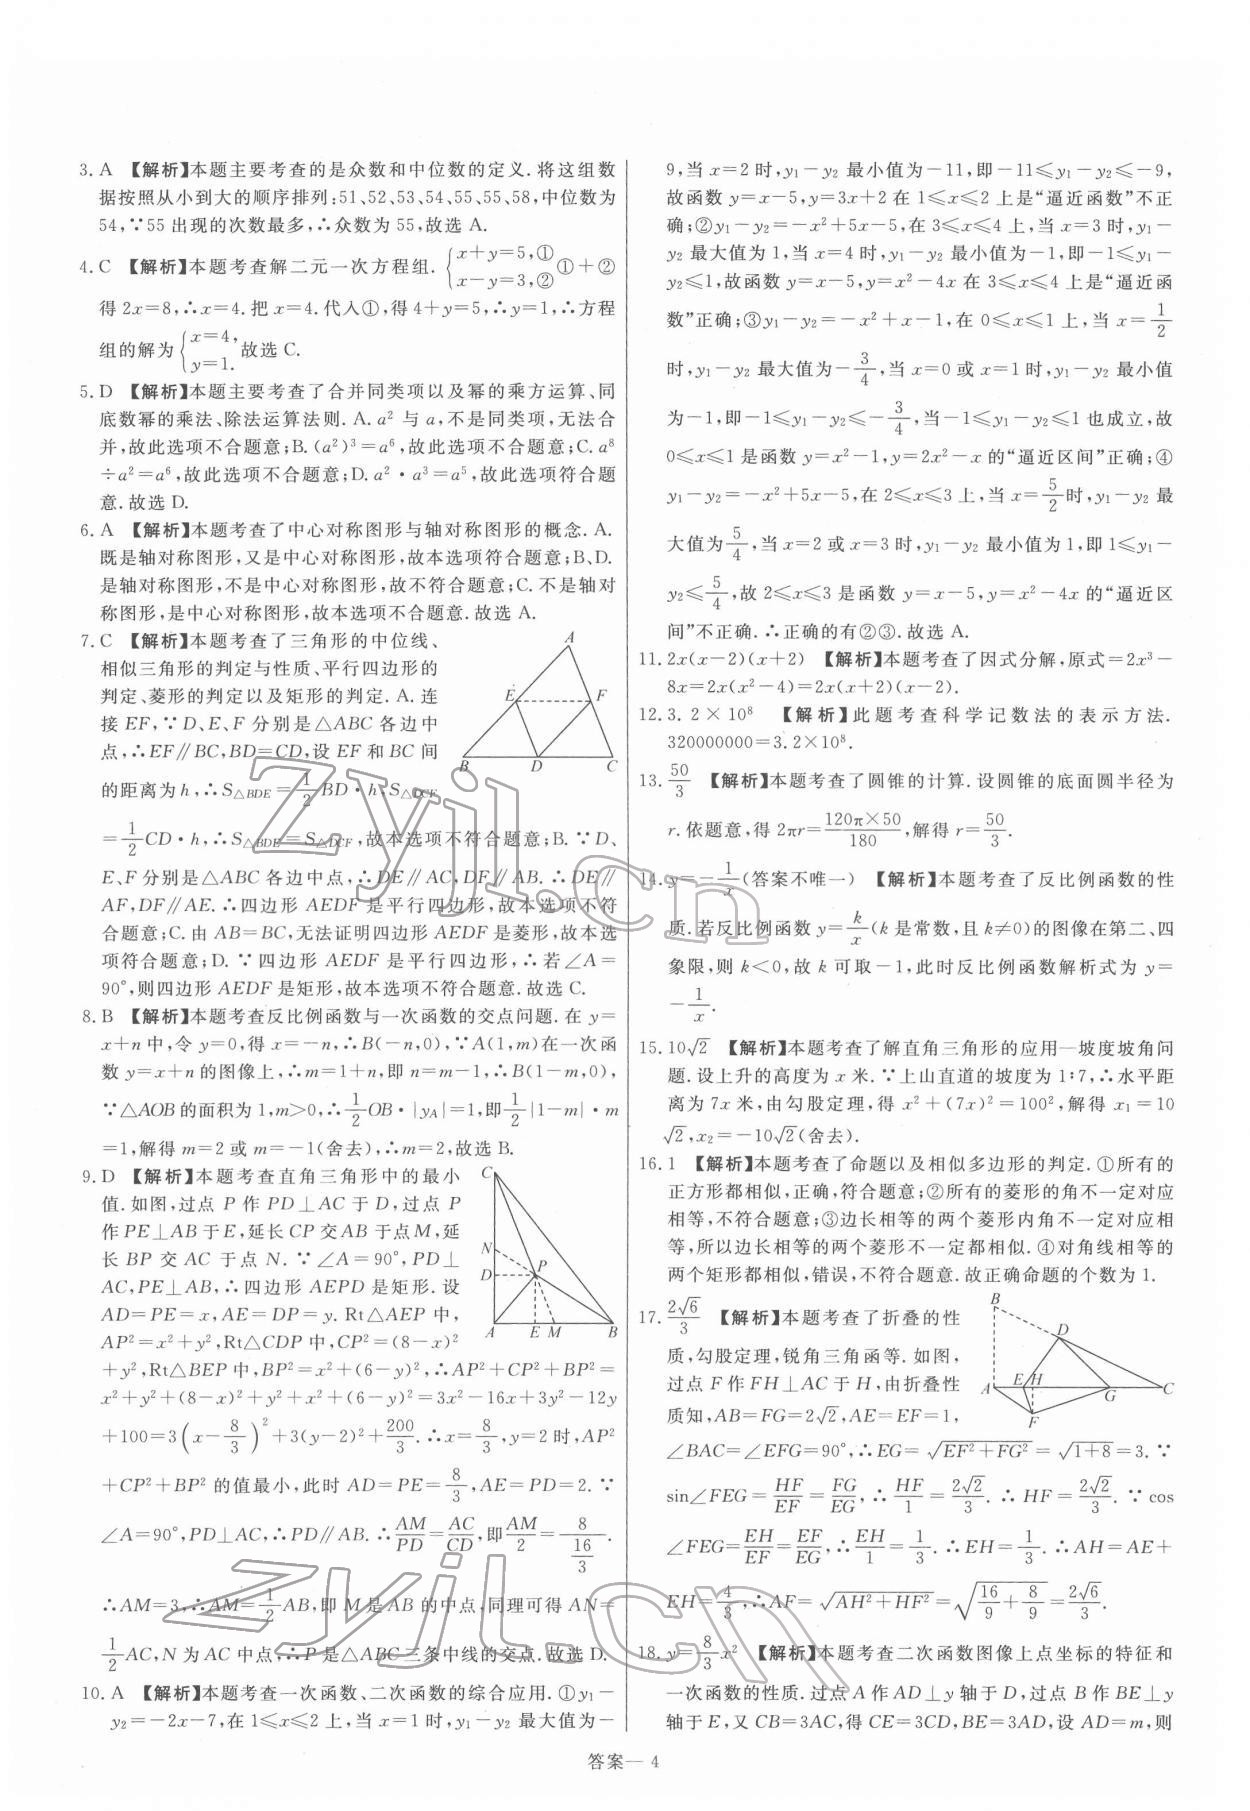 3. A 【解析】本题主要考查的是众数和中位数的定义. 将这组数
据按照从小到大的顺序排列:51,52,53,54,55,55,58,中位数为
54,∵55 出现的次数最多,∴众数为 55,故选 A.
4. C 【解析】本题考查解二元一次方程组. {x+y=5,① x−y=3,② ①+②
得 2x=8,∴x=4. 把 x=4. 代入①,得 4+y=5,∴y=1,∴方程
组的解为{x=4, y=1. 故选 C.
5. D 【解析】本题主要考查了合并同类项以及幂的乘方运算、同
底数幂的乘法、除法运算法则. A. a² 与 a,不是同类项,无法合
并,故此选项不合题意;B. (a²)³=a⁶,故此选项不合题意;C. a⁸
÷a²=a⁶,故此选项不合题意;D. a²·a³=a⁵,故此选项符合题
意. 故选 D.
6. A 【解析】本题考查了中心对称图形与轴对称图形的概念. A.
既是轴对称图形,又是中心对称图形,故本选项符合题意;B、D.
是轴对称图形,不是中心对称图形,故不符合题意;C. 不是轴对
称图形,是中心对称图形,故本选项不合题意. 故选 A.
7. C 【解析】本题考查了三角形的中位线、
相似三角形的判定与性质、平行四边形的
判定、菱形的判定以及矩形的判定. A. 连
接 EF,∵D、E、F 分别是△ABC 各边中
点,∴EF∥BC,BD=CD,设 EF 和 BC 间
的距离为 h,∴S△BDE=1/2 BD·h,S△DCF
=1/2 CD·h,∴S△BDE=S△DCF,故本选项不符合题意;B. ∵D、
E、F 分别是△ABC 各边中点,∴DE∥AC,DF∥AB. ∴DE∥
AF,DF∥AE. ∴四边形 AEDF 是平行四边形,故本选项不符
合题意;C. 由 AB=BC,无法证明四边形 AEDF 是菱形,故本选
项符合题意;D. ∵四边形 AEDF 是平行四边形,∴若∠A=
90°,则四边形 AEDF 是矩形,故本选项不符合题意. 故选 C.
A
E
F
B
D
C
8. B 【解析】本题考查反比例函数与一次函数的交点问题. 在 y=
x+n 中,令 y=0,得 x=−n,∴B(−n,0),∵A(1,m)在一次函
数 y=x+n 的图像上,∴m=1+n,即 n=m−1,∴B(1−m,0),
∵△AOB 的面积为 1,m>0,∴1/2 OB·|yA|=1,即1/2|1−m|·m
=1,解得 m=2 或 m=−1(舍去),∴m=2,故选 B.
9. D 【解析】本题考查直角三角形中的最小
值. 如图,过点 P 作 PD⊥AC 于 D,过点 P
作 PE⊥AB 于 E,延长 CP 交 AB 于点 M,延
长 BP 交 AC 于点 N. ∵∠A=90°,PD⊥
AC,PE⊥AB,∴四边形 AEPD 是矩形. 设
AD=PE=x,AE=DP=y. Rt△AEP 中,
AP²=x²+y²,Rt△CDP 中,CP²=(8−x)²
+y²,Rt△BEP 中,BP²=x²+(6−y)²,∴AP²+CP²+BP²=
x²+y²+(8−x)²+y²+x²+(6−y)²=3x²−16x+3y²−12y
+100=3(x−8/3)²+3(y−2)²+200/3. ∴x=8/3,y=2 时,AP²
+CP²+BP² 的值最小,此时 AD=PE=8/3,AE=PD=2. ∵
∠A=90°,PD⊥AC,∴PD∥AB. ∴AM/PD=AC/CD,即AM/2=8/(16/3).
∴AM=3,∴AM=1/2 AB,即 M 是 AB 的中点,同理可得 AN=
1/2 AC,N 为 AC 中点,∴P 是△ABC 三条中线的交点. 故选 D.
C
N
D
P
A
E
M
B
10. A 【解析】本题考查一次函数、二次函数的综合应用. ①y₁−
y₂=−2x−7,在 1⩽x⩽2 上,当 x=1 时,y₁−y₂ 最大值为−
9,当 x=2 时,y₁−y₂ 最小值为−11,即−11⩽y₁−y₂⩽−9,
故函数 y=x−5,y=3x+2 在 1⩽x⩽2 上是“逼近函数”不正
确;②y₁−y₂=−x²+5x−5,在 3⩽x⩽4 上,当 x=3 时,y₁−
y₂ 最大值为 1,当 x=4 时,y₁−y₂ 最小值为−1,即−1⩽y₁−
y₂⩽1,故函数 y=x−5,y=x²−4x 在 3⩽x⩽4 上是“逼近函
数”正确;③y₁−y₂=−x²+x−1,在 0⩽x⩽1 上,当 x=1/2
时,y₁−y₂ 最大值为−3/4,当 x=0 或 x=1 时,y₁−y₂ 最小值
为−1,即−1⩽y₁−y₂⩽−3/4,当−1⩽y₁−y₂⩽1 也成立,故
0⩽x⩽1 是函数 y=x²−1,y=2x²−x 的“逼近区间”正确;④
y₁−y₂=−x²+5x−5,在 2⩽x⩽3 上,当 x=5/2时,y₁−y₂ 最
大值为5/4,当 x=2 或 x=3 时,y₁−y₂ 最小值为 1,即 1⩽y₁−
y₂⩽5/4,故 2⩽x⩽3 是函数 y=x−5,y=x²−4x 的“逼近区
间”不正确. ∴正确的有②③. 故选 A.
11. 2x(x−2)(x+2) 【解析】本题考查了因式分解,原式=2x³−
8x=2x(x²−4)=2x(x+2)(x−2).
12. 3. 2×10⁸ 【解析】此题考查科学记数法的表示方法.
320000000=3.2×10⁸.
13. 50/3 【解析】本题考查了圆锥的计算. 设圆锥的底面圆半径为
r. 依题意,得 2πr=120π×50/180,解得 r=50/3.
14. y=−1/x(答案不唯一) 【解析】本题考查了反比例函数的性
质. 若反比例函数 y=k/x(k 是常数,且 k≠0)的图像在第二、四
象限,则 k<0,故 k 可取−1,此时反比例函数解析式为 y=
−1/x.
15. 10√2 【解析】本题考查了解直角三角形的应用—坡度坡角问
题. 设上升的高度为 x 米. ∵上山直道的坡度为 1∶7,∴水平距
离为 7x 米,由勾股定理,得 x²+(7x)²=100²,解得 x₁=10
√2,x₂=−10√2(舍去).
16. 1 【解析】本题考查了命题以及相似多边形的判定. ①所有的
正方形都相似,正确,符合题意;②所有的菱形的角不一定对应
相等,不符合题意;③边长相等的两个菱形内角不一定对应相
等,所以边长相等的两个菱形不一定都相似. ④对角线相等的
两个矩形都相似,错误,不符合题意. 故正确命题的个数为 1.
17. 2√6/3 【解析】本题考查了折叠的性
质,勾股定理,锐角三角函等. 如图,
过点 F 作 FH⊥AC 于 H,由折叠性
质知,AB=FG=2√2,AE=EF=1,
∠BAC=∠EFG=90°,∴EG=√(EF²+FG²)=√(1+8)=3. ∵
sin∠FEG=HF/EF=FG/EG,∴HF/1=2√2/3. ∴HF=2√2/3. ∵cos
∠FEG=EH/EF=EF/EG,∴EH/1=1/3. ∴EH=1/3. ∴AH=AE+
EH=4/3,∴AF=√(AH²+HF²)=√(16/9+8/9)=2√6/3.
B
D
A
E
H
G
C
F
18. y=8/3 x² 【解析】本题考查二次函数图像上点坐标的特征和
一次函数的性质. 过点 A 作 AD⊥y 轴于 D,过点 B 作 BE⊥y
轴于 E,又 CB=3AC,得 CE=3CD,BE=3AD,设 AD=m,则
答案— 4
zyjl.cn
zyjl.cn